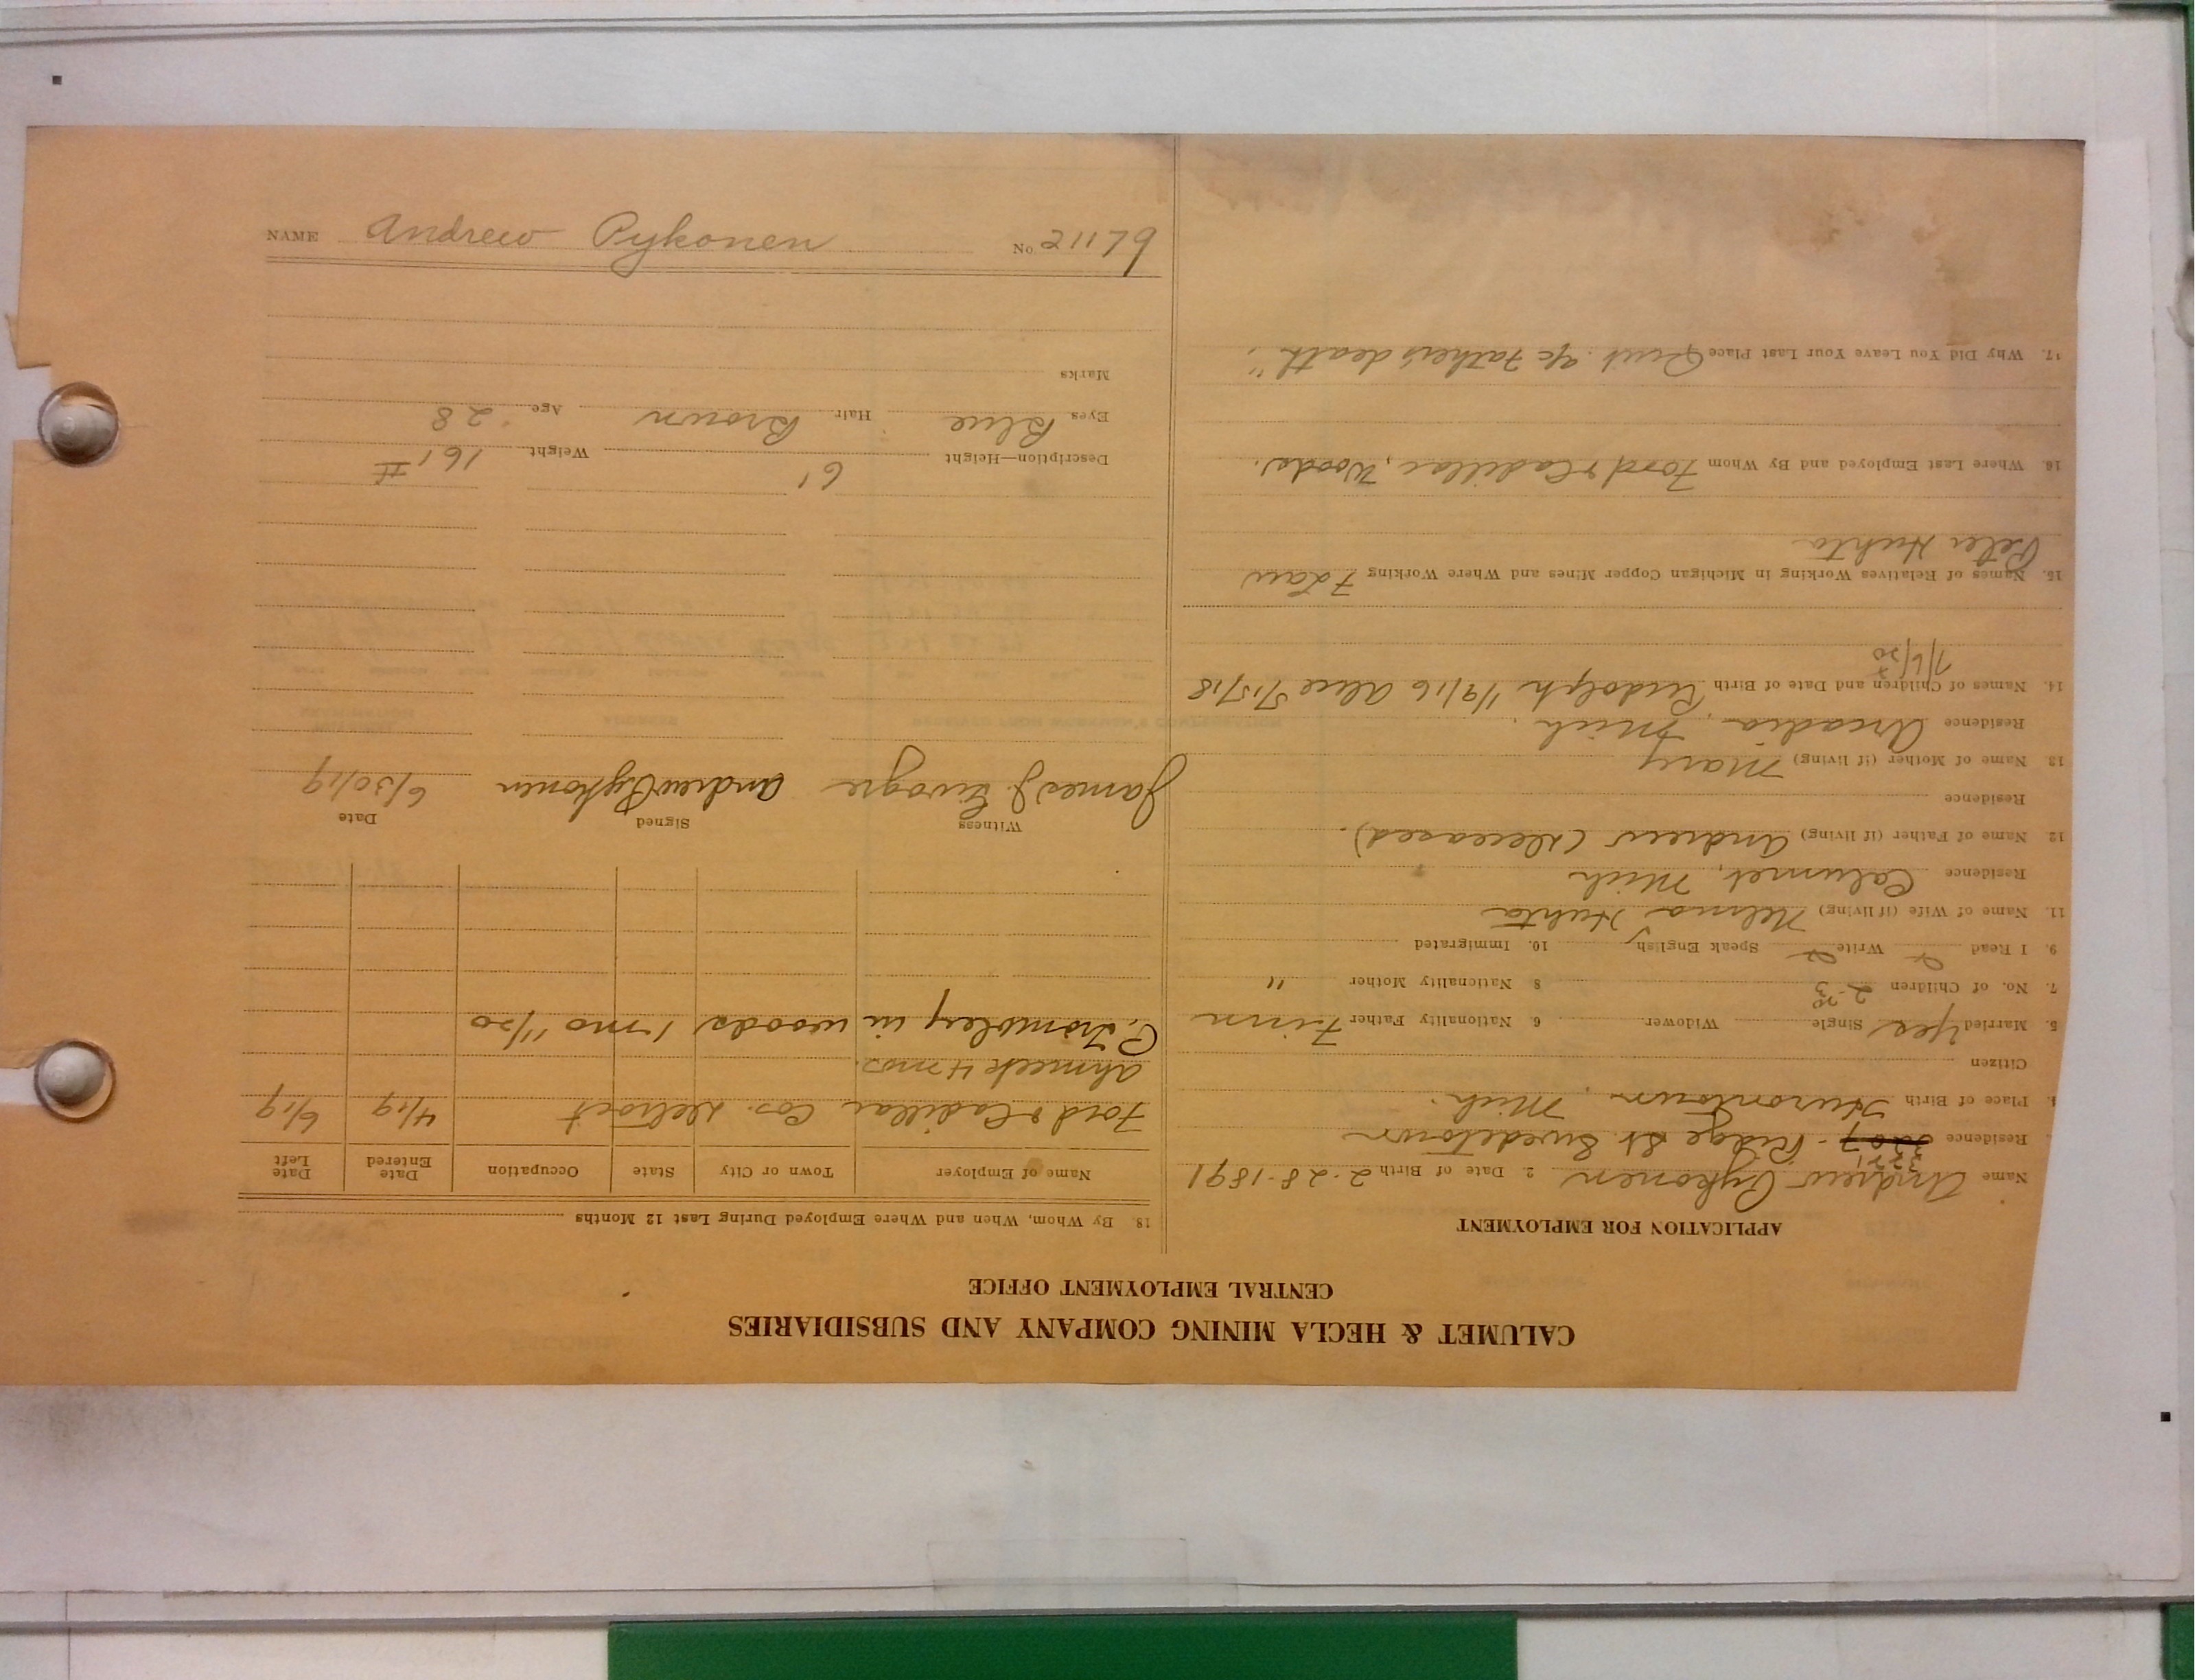 CALUMET & HECLA MINING COMPANY AND SUBSIDIARIES
CENTRAL EMPLOYMENT OFFICE
APPLICATION FOR EMPLOYMENT
Name Andrew Pykonen 2. Date of Birth 2-28-1891
Residence Ridge St. Swedetown
Place of Birth Hurontown, Mich.
Citizen
5. Married Yes Single Widower 6 Nationality Father Finn
7. No. of Children 2 3 8 Nationality Mother "
9. I Read Write Speak English 10. Immigrated
11. Name of Wife (if living) Helma Huhta
Residence Calumet, Mich
12 Name of Father (if living) Andrew (deceased).
Residence
13. Name of Mother (if living) Mary
Residence Arcadia, Mich.
14. Names of Children and Date of Birth Rudolph 1/9/16 Alice 5/15/18
7/6/20
15. Names of Relatives Working in Michigan Copper Mines and Where Working F Law
Peter Huhta
16. Where Last Employed and By Whom Ford & Cadillac, Woods.
17. Why Did You Leave Your Last Place Quit a/c Father's death"
18. By Whom, When and Where Employed During Last 12 Months
Name of Employer Town or City State Occupation Date Entered Date Left
Ford & Cadillac Cos. Detroit 4/19 6/19
Ahmeek 4 mos.
C. Trombley in woods 1 mo 11/20
Witness Signed Date
James J. Andrew Pykonen 6/30/19
Description—Height 6' Weight 161 #
Eyes Blue Hair Brown Age 28
Marks
NAME Andrew Pykonen No. 21179